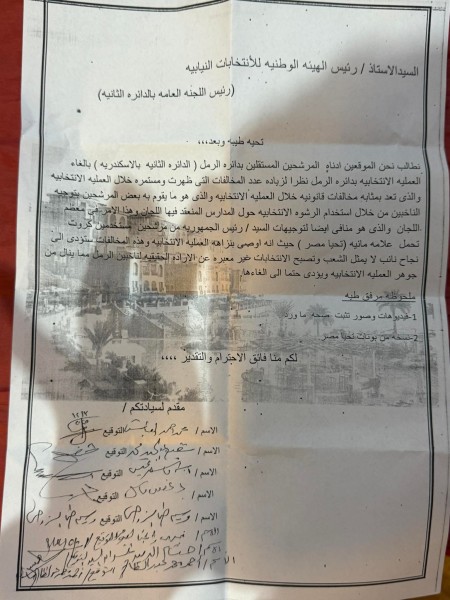 السيد الاستاذ / رئيس الهيئه الوطنيه للأنتخابات النيابيه
(رئيس اللجنه العامه بالدائره الثانيه)
تحيه طيبه وبعد،،،
نطالب نحن الموقعين ادناه المرشحين المستقلين بدائره الرمل ( الدائره الثانيه بالاسكندريه ) بالغاء
العمليه الانتخابيه بدائره الرمل نظرا لزياده عدد المخالفات التى ظهرت ومستمره خلال العمليه الانتخابيه
والذى تعد بمثابه مخالفات قانونيه خلال العمليه الانتخابيه والذى هو ما يقوم به بعض المرشحين بتوجيه
الناخبين من خلال استخدام الرشوه الانتخابيه حول المدارس المنعقد فيها اللجان وهذا الامر فى معضد
اللجان والذى هو منافى ايضا لتوجيهات السيد / رئيس الجمهوريه من مرشحين مستخدمين كروت
تحمل علامه مانيه (تحيا مصر) حيث انه اوصى بنزاهه العمليه الانتخابيه وهذه المخالفات ستودى الى
نجاح نائب لا يمثل الشعب وتصبح الانتخابات غير معبره عن الاراده الحقيقيه لناخبين الرمل مما ينال من
جوهر العمليه الانتخابيه ويؤدى حتما الى الغاءها.
ملحوظه مرفق طيه
1-فيديوهات وصور تثبت صحه ما ورد
2-نسخه من بونات تحيا مصر
لكم منا فائق الاحترام والتقدير ،،،،
مقدم لسيادتكم /
الاسم / التوقيع
الاسم / التوقيع
الاسم / التوقيع
الاسم / التوقيع
الاسم / التوقيع
الاسم / التوقيع
الاسم /
الاسم / التوقيع /